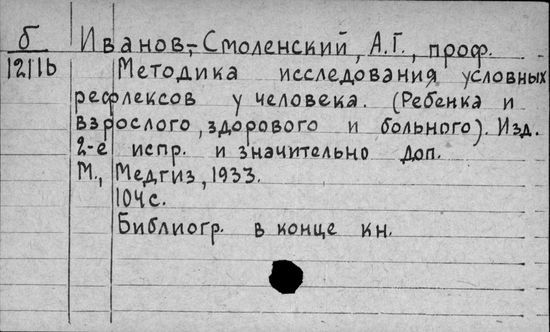 б Иванов-Смоленский, А.Г., проф.
12116 Методика исследования условных
рефлексов у человека. (Ребенка и
взрослого, здорового и больного). Изд.
2-е испр. и значительно доп.
М., Медгиз, 1933.
104с.
Библиогр. в конце кн.